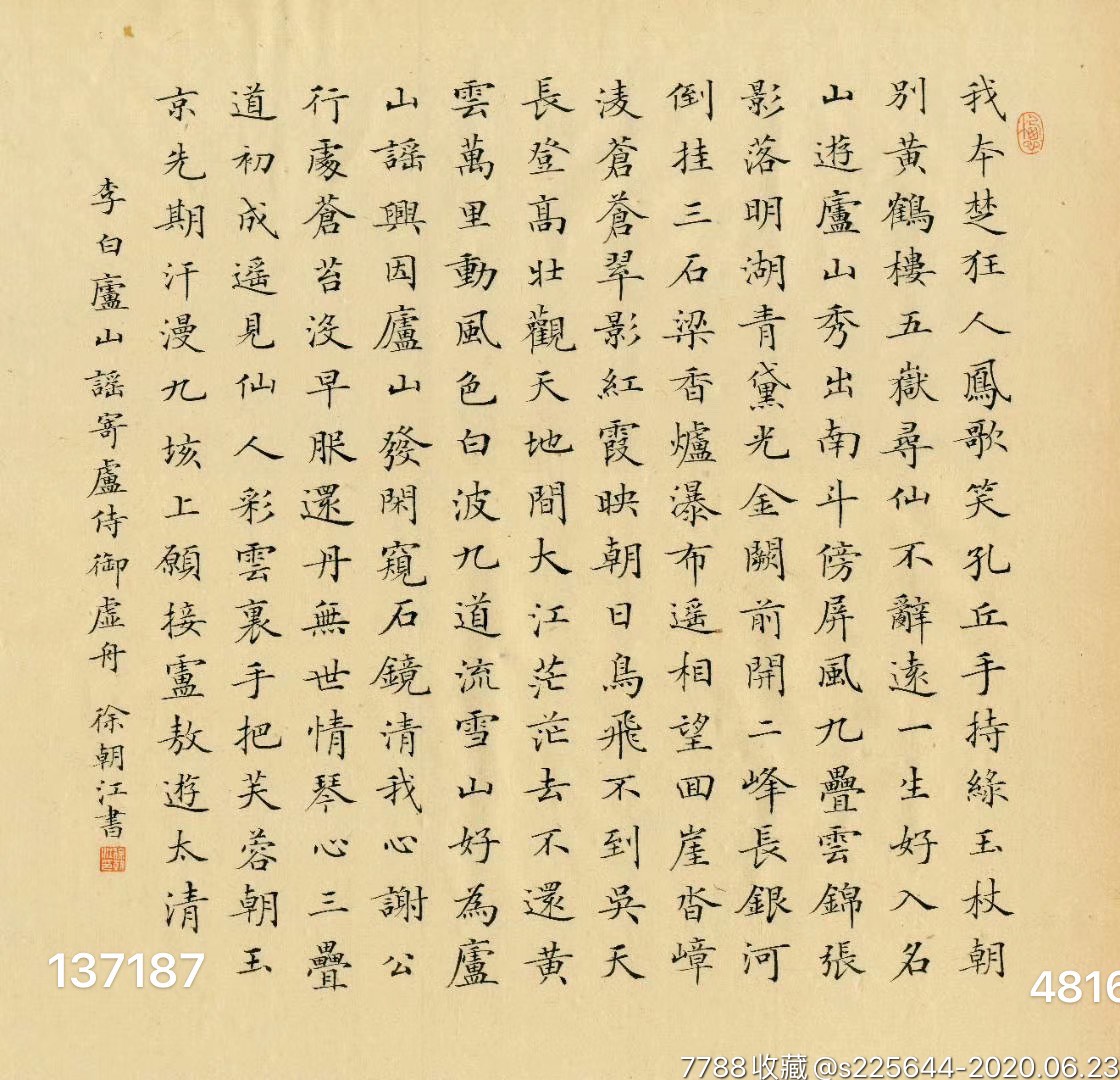 我本楚狂人鳳歌笑孔丘手持綠玉杖朝
別黃鶴樓五嶽尋仙不辭遠一生好入名
山遊廬山秀出南斗傍屏風九疊雲錦張
影落明湖青黛光金闕前開二峰長銀河
倒挂三石梁香爐瀑布遥相望回崖沓嶂
淩蒼蒼翠影紅霞映朝日鳥飛不到吳天
長登高壯觀天地間大江茫茫去不還黃
雲萬里動風色白波九道流雪山好為廬
山謠興因廬山發閑窺石鏡清我心謝公
行處蒼苔沒早服還丹無世情琴心三疊
道初成遥見仙人彩雲裏手把芙蓉朝玉
京先期汗漫九垓上願接盧敖遊太清
李白廬山謠寄盧侍御虛舟 徐朝江書
137187
4816
7788收藏@s225644-2020.06.23